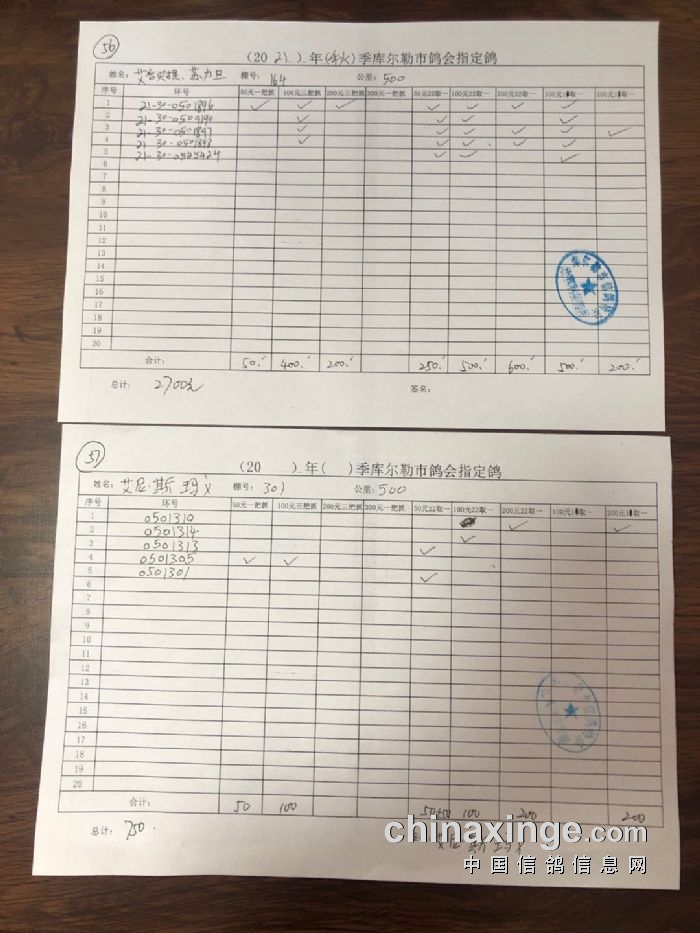 56
(20 21 ) 年(秋)季库尔勒市鸽会指定鸽
姓名： 苏力旦 棚号：164 公里：500
序号 环号 50元一把抓 100元三把抓 200元三把抓 300元一把抓 50元22取一 100元22取一 200元22取一 100元1取一 200元1取一
1 21-30-0501896 ✓ ✓ ✓ ✓ ✓ ✓ ✓
2 21-30-0509190 ✓ ✓ ✓ ✓
3 21-30-0501897 ✓ ✓ ✓ ✓ ✓ ✓
4 21-30-0501893 ✓ ✓ ✓ ✓ ✓
5 21-30-0545424 ✓ ✓ ✓
6
7
8
9
10
11
12
13
14
15
16
17
18
19
20
合计： 50 400 200 250 500 600 500 200
总计： 2700元 签名：
57
(20 ) 年( )季库尔勒市鸽会指定鸽
姓名：艾尼·斯玛 棚号：301 公里：500
序号 环号 50元一把抓 100元三把抓 200元三把抓 300元一把抓 50元22取一 100元22取一 200元22取一 100元1取一 200元1取一
1 0501310
2 0501314 ✓ ✓
3 0501313 ✓
4 0501305 ✓ ✓ ✓
5 0501301
6 ✓
7
8
9
10
11
12
13
14
15
16
17
18
19
20
合计： 50 100 50+50 100 200 200
总计： 750.
艾尼斯玛
chinaxinge.com
中国信鸽信息网